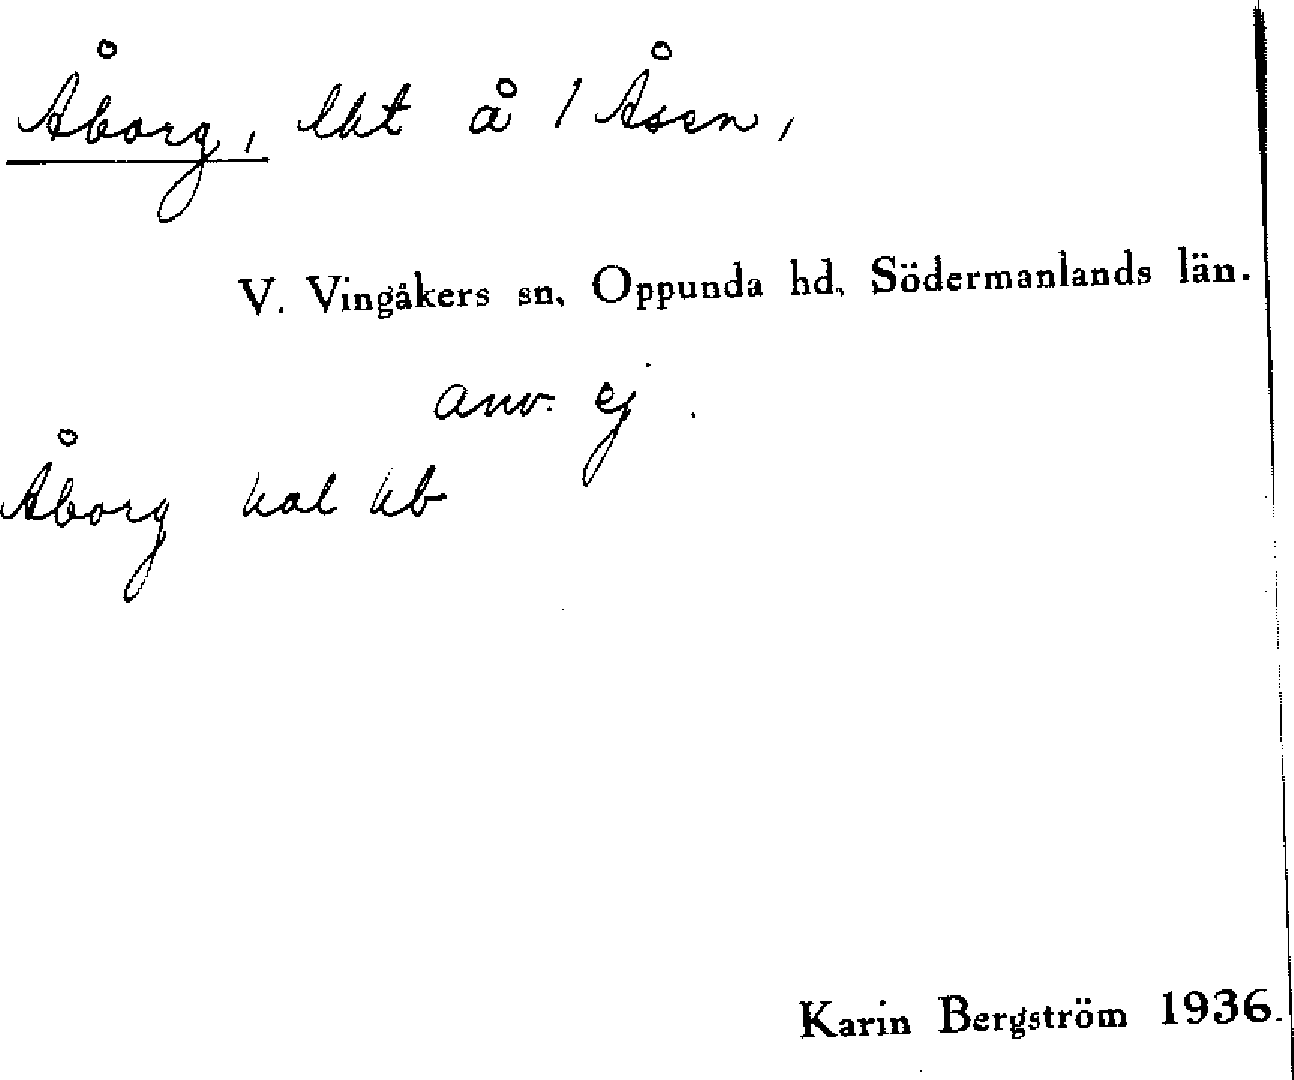 Åborg, lht å 1 Åsen,
V. Vingåkers sn, Oppunda hd, Södermanlands län.
anv. ej.
Åborg kal kb
Karin Bergström 1936.